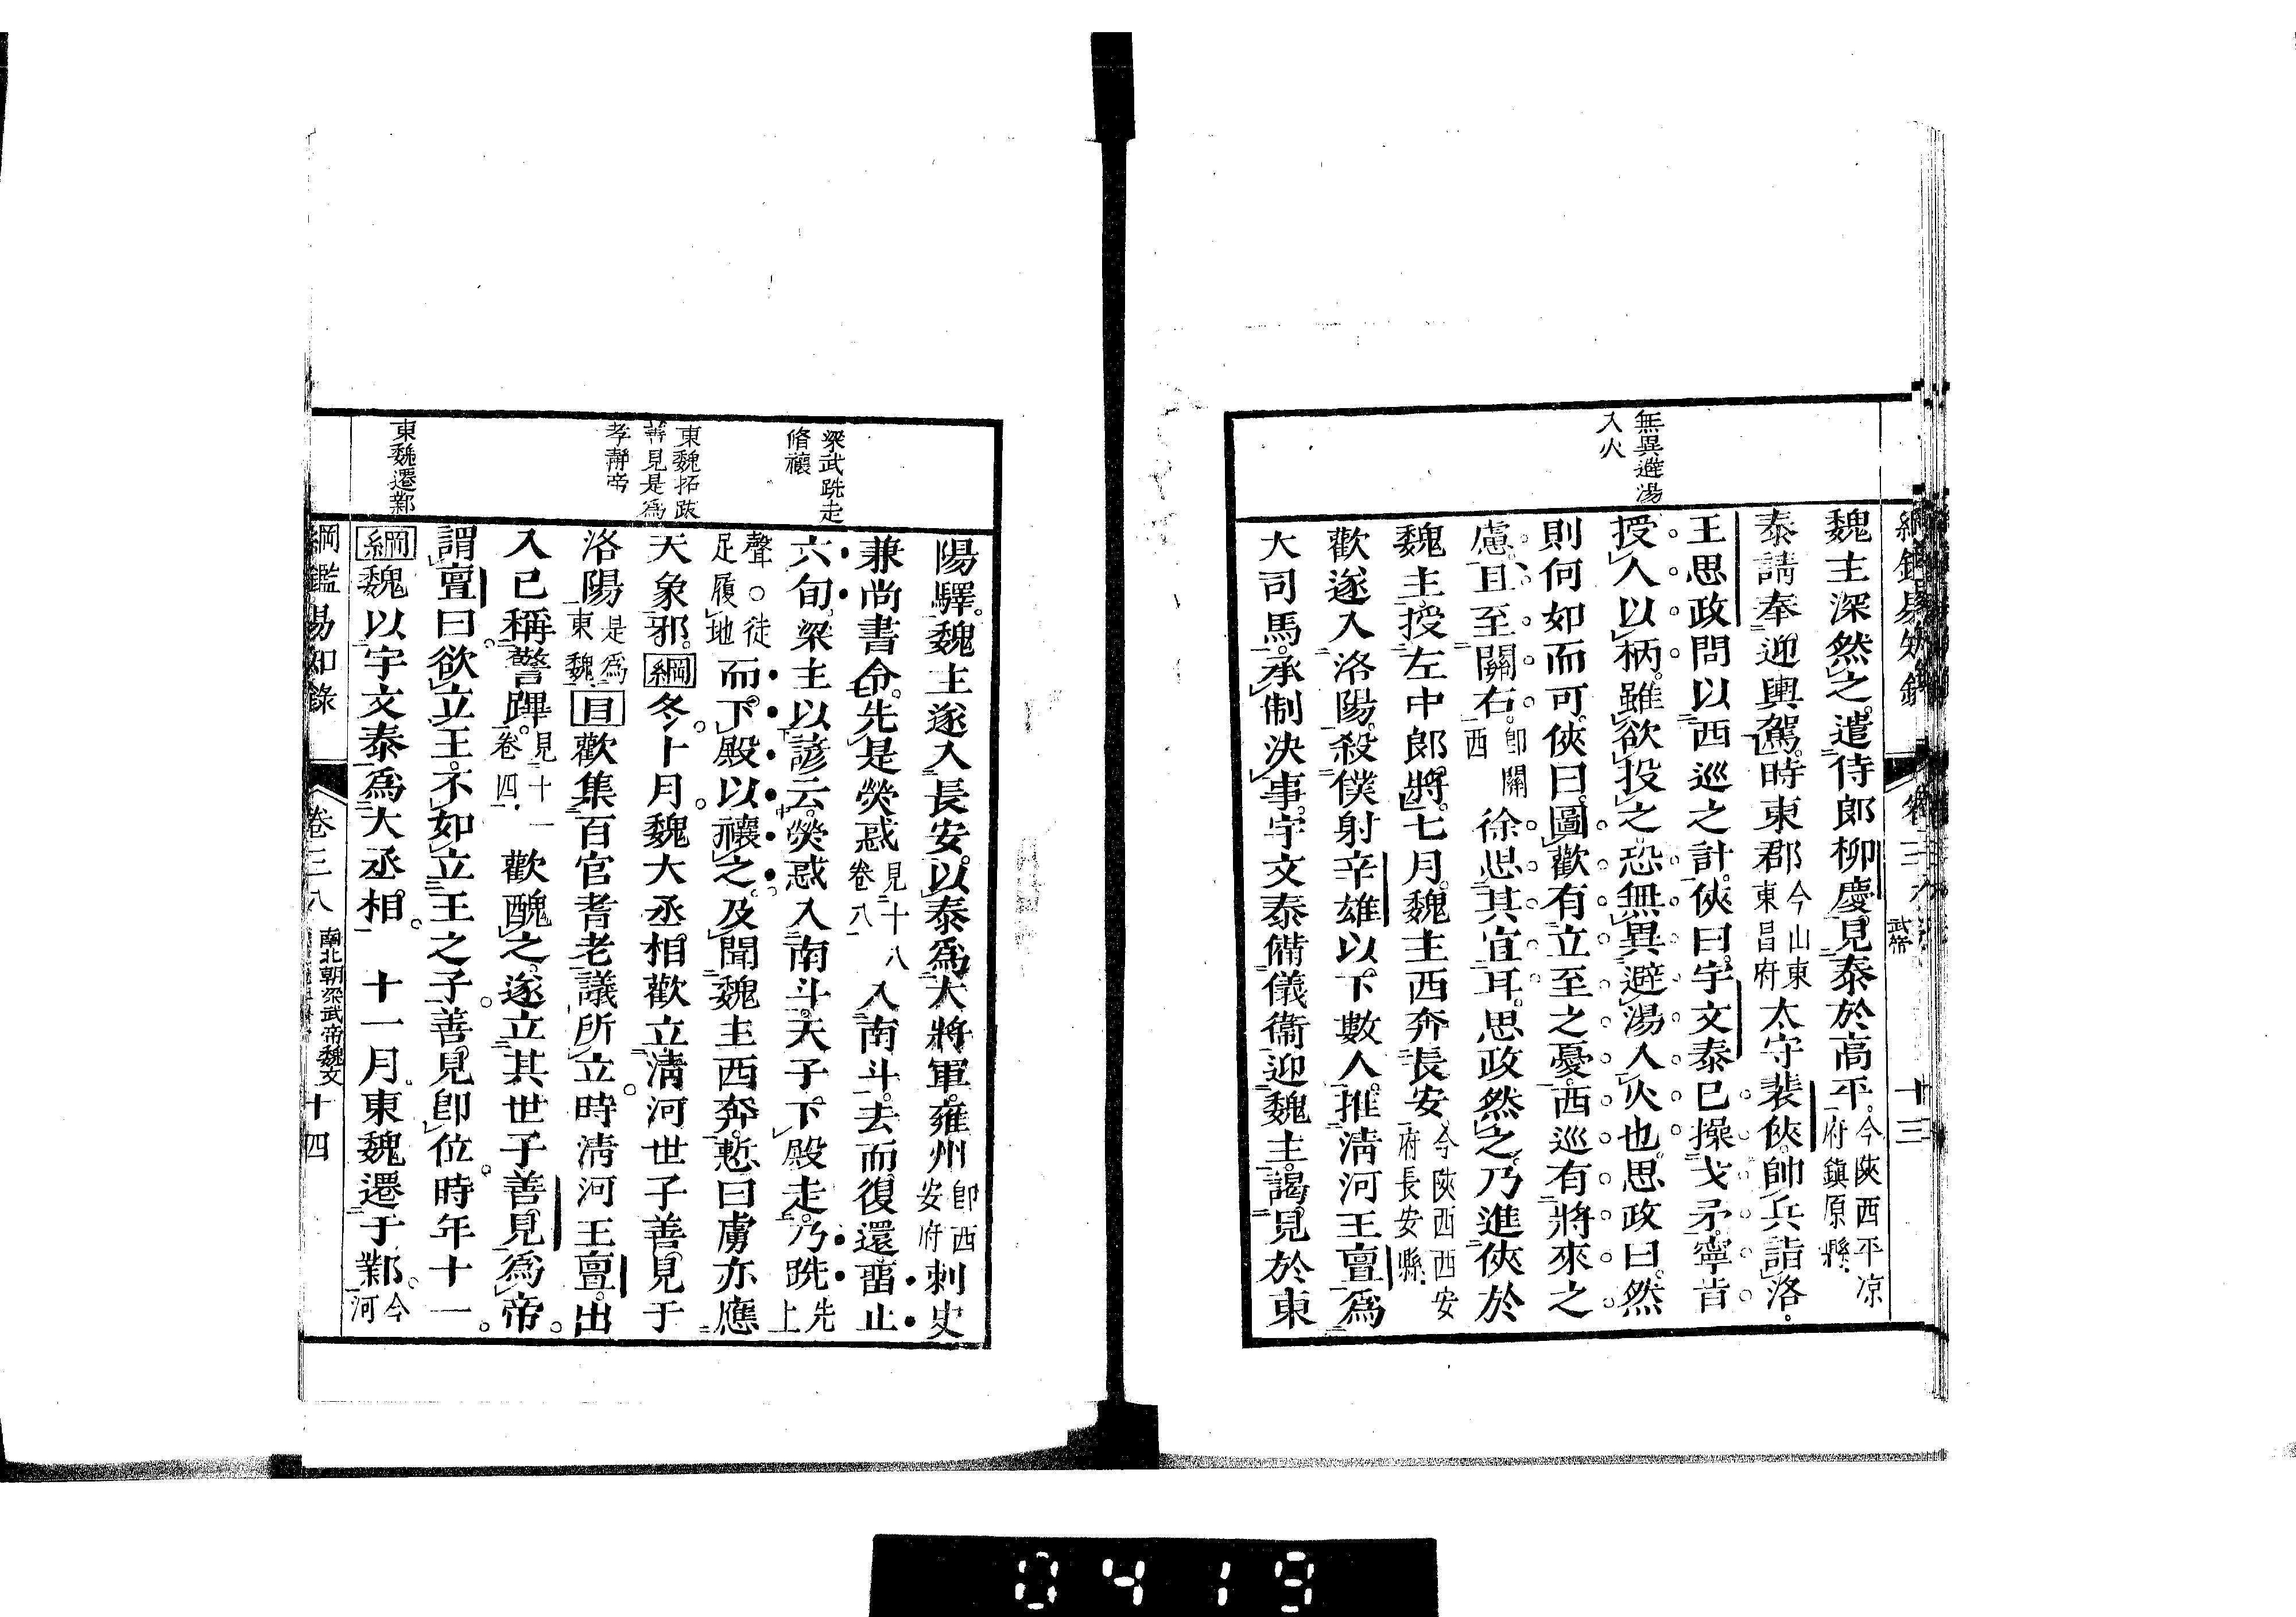 綱鑑易知錄
武帝
十三
無異避湯
入火
魏主深然之。遣侍郎柳慶見泰於高平。今陝西平凉府鎮原縣。
泰請奉迎輿駕。時東郡今山東東昌府太守裴俠。帥兵詣洛。
王思政問以西巡之計。俠曰。宇文泰已操戈矛。寧肯
授人以柄。雖欲投之。恐無異避湯入火也。思政曰。然
則何如而可。俠曰。圖歡有立至之憂。西巡有將來之
慮。且至關右。卽關西徐思其宜耳。思政然之。乃進俠於
魏主。授左中郎將。七月。魏主西奔長安今陝西西安府長安縣。
歡遂入洛陽。殺僕射辛雄以下數人。推淸河王亶爲
大司馬。承制決事。宇文泰備儀衞迎魏主。謁見於東
陽驛。魏主遂入長安。以泰爲大將軍。雍州卽西安府刺史
兼尚書令。先是熒惑見十八卷八入南斗。去而復還畱止
六旬。梁主以諺云。熒惑入南斗。天子下殿走。乃跣先上
聲○徒足履地而下殿以禳之。及聞魏主西奔。慙曰虜亦應
天象邪。綱冬。十月。魏大丞相歡立淸河世子善見于
洛陽是爲東魏目歡集百官耆老議所立。時淸河王亶。出
入已稱警蹕。見十一卷四。歡醜之。遂立其世子善見爲帝。
謂亶曰。欲立王。不如立王之子。善見卽位。時年十一。
綱魏以宇文泰爲大丞相。十一月。東魏遷于鄴。今河
梁武跣走
脩禳
東魏拓跋
善見是爲
孝靜帝
東魏遷鄴
綱鑑易知錄
卷三八
南北朝梁武帝魏文
十四
0419